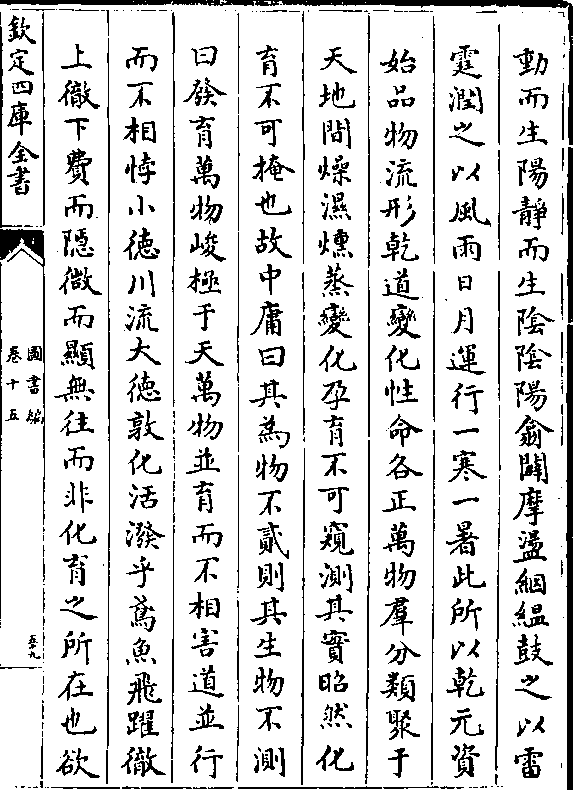 動而生陽靜而生陰陰陽翕闢摩盪絪縕鼓之以雷
霆潤之以風雨日月運行一寒一暑此所以乾元資
始品物流形乾道變化性命各正萬物羣分類聚于
天地間燥濕燻蒸變化孕育不可窺測其實昭然化
育不可掩也故中庸曰其為物不貳則其生物不測
曰發育萬物峻極于天萬物並育而不相害道並行
而不相悖小德川流大德敦化活潑乎鳶魚飛躍徹
上徹下費而隱微而顯無往而非化育之所在也欲
欽定四庫全書
圖書編
卷十五
五十九